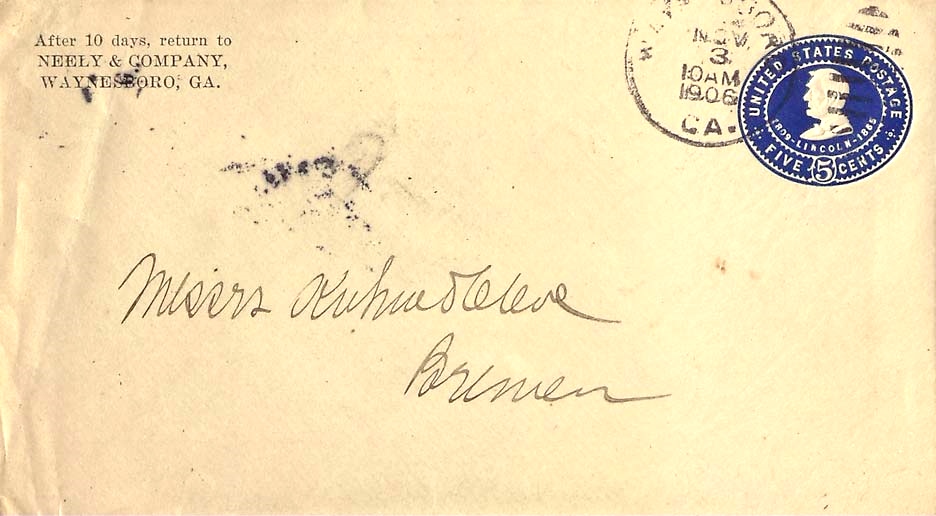 After 10 days, return to
NEELY & COMPANY,
WAYNESBORO, GA.
NOV
3
10AM
1906
GA.
UNITED STATES POSTAGE
1809-LINCOLN-1865
FIVE 5 CENTS
Messrs
Bremen